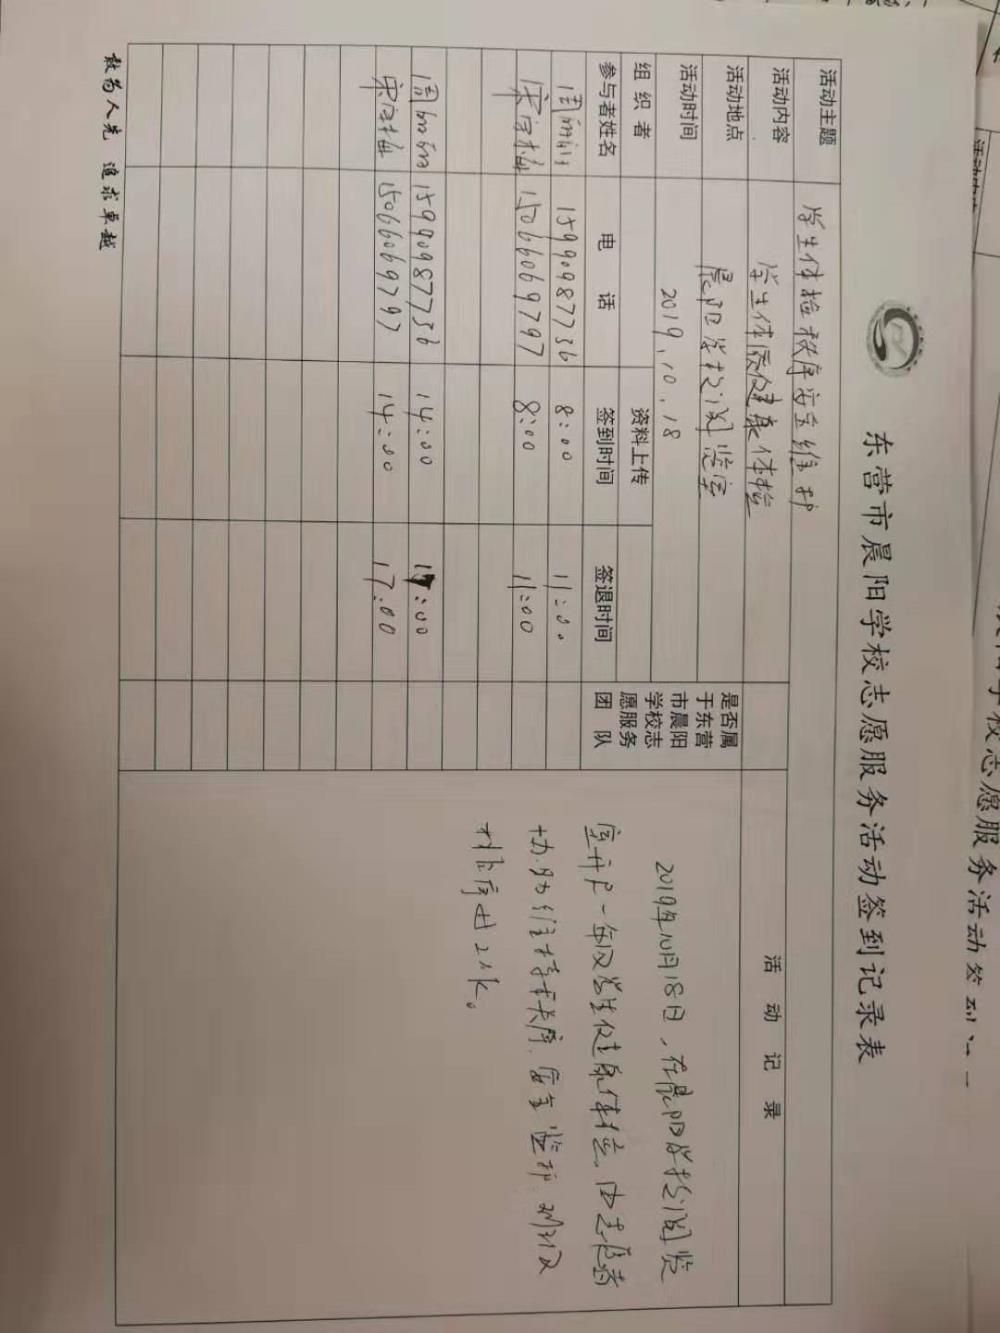 东营市晨阳学校志愿服务活动签到记录表
活动主题 学生体检秩序安全维护
活动内容 学生体质健康体检
活动地点 晨阳学校阅览室
活动时间 2019.10.18
组织者 资料上传
参与者姓名 电话 签到时间 签退时间 是否属于东营市晨阳学校志愿服务团队
15990987736 8:00 11:00
15066069797 8:00 11:00
15990987736 14:00 17:00
15066069797 14:00 17:00
活动记录
2019年10月18日,在晨阳学校阅览
室开户一年级学生健康体检。由志愿者
协助维持秩序,安全监护
敢为人先 追求卓越
志愿服务活动签到